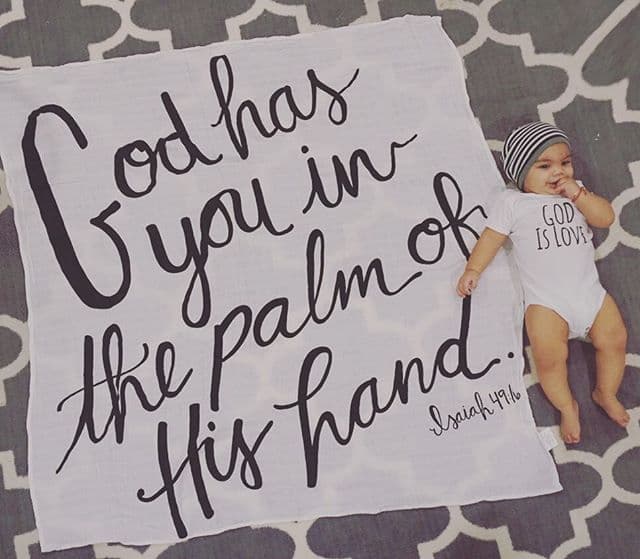 God has
you in
the palm of
His hand.
Isaiah 49:16
GOD
IS LOVE